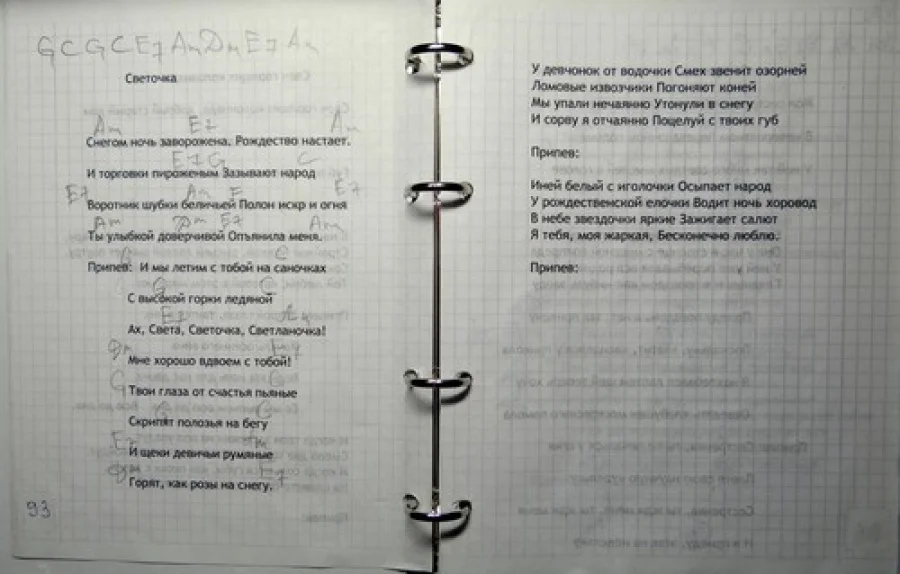 G C G C E7 Am Dm E7 Am
Светочка
Am E7 Am
Снегом ночь заворожена. Рождество настает.
E7 G C
И торговки пироженым Зазывают народ
E7 Am E E7
Воротник шубки беличьей Полон искр и огня
Am Dm E7 Am
Ты улыбкой доверчивой Опьянила меня.
G C
Припев: И мы летим с тобой на саночках
G C
С высокой горки ледяной
E7 Am
Ах, Света, Светочка, Светланочка!
Dm E7
Мне хорошо вдвоем с тобой!
G
Твои глаза от счастья пьяные
G C
Скрипят полозья на бегу
E7 Am
И щеки девичьи румяные
Dm E7
Горят, как розы на снегу.
93
У девчонок от водочки Смех звенит озорней
Ломовые извозчики Погоняют коней
Мы упали нечаянно Утонули в снегу
И сорву я отчаянно Поцелуй с твоих губ
Припев:
Иней белый с иголочки Осыпает народ
У рождественской елочки Водит ночь хоровод
В небе звездочки яркие Зажигает салют
Я тебя, моя жаркая, Бесконечно люблю.
Припев: